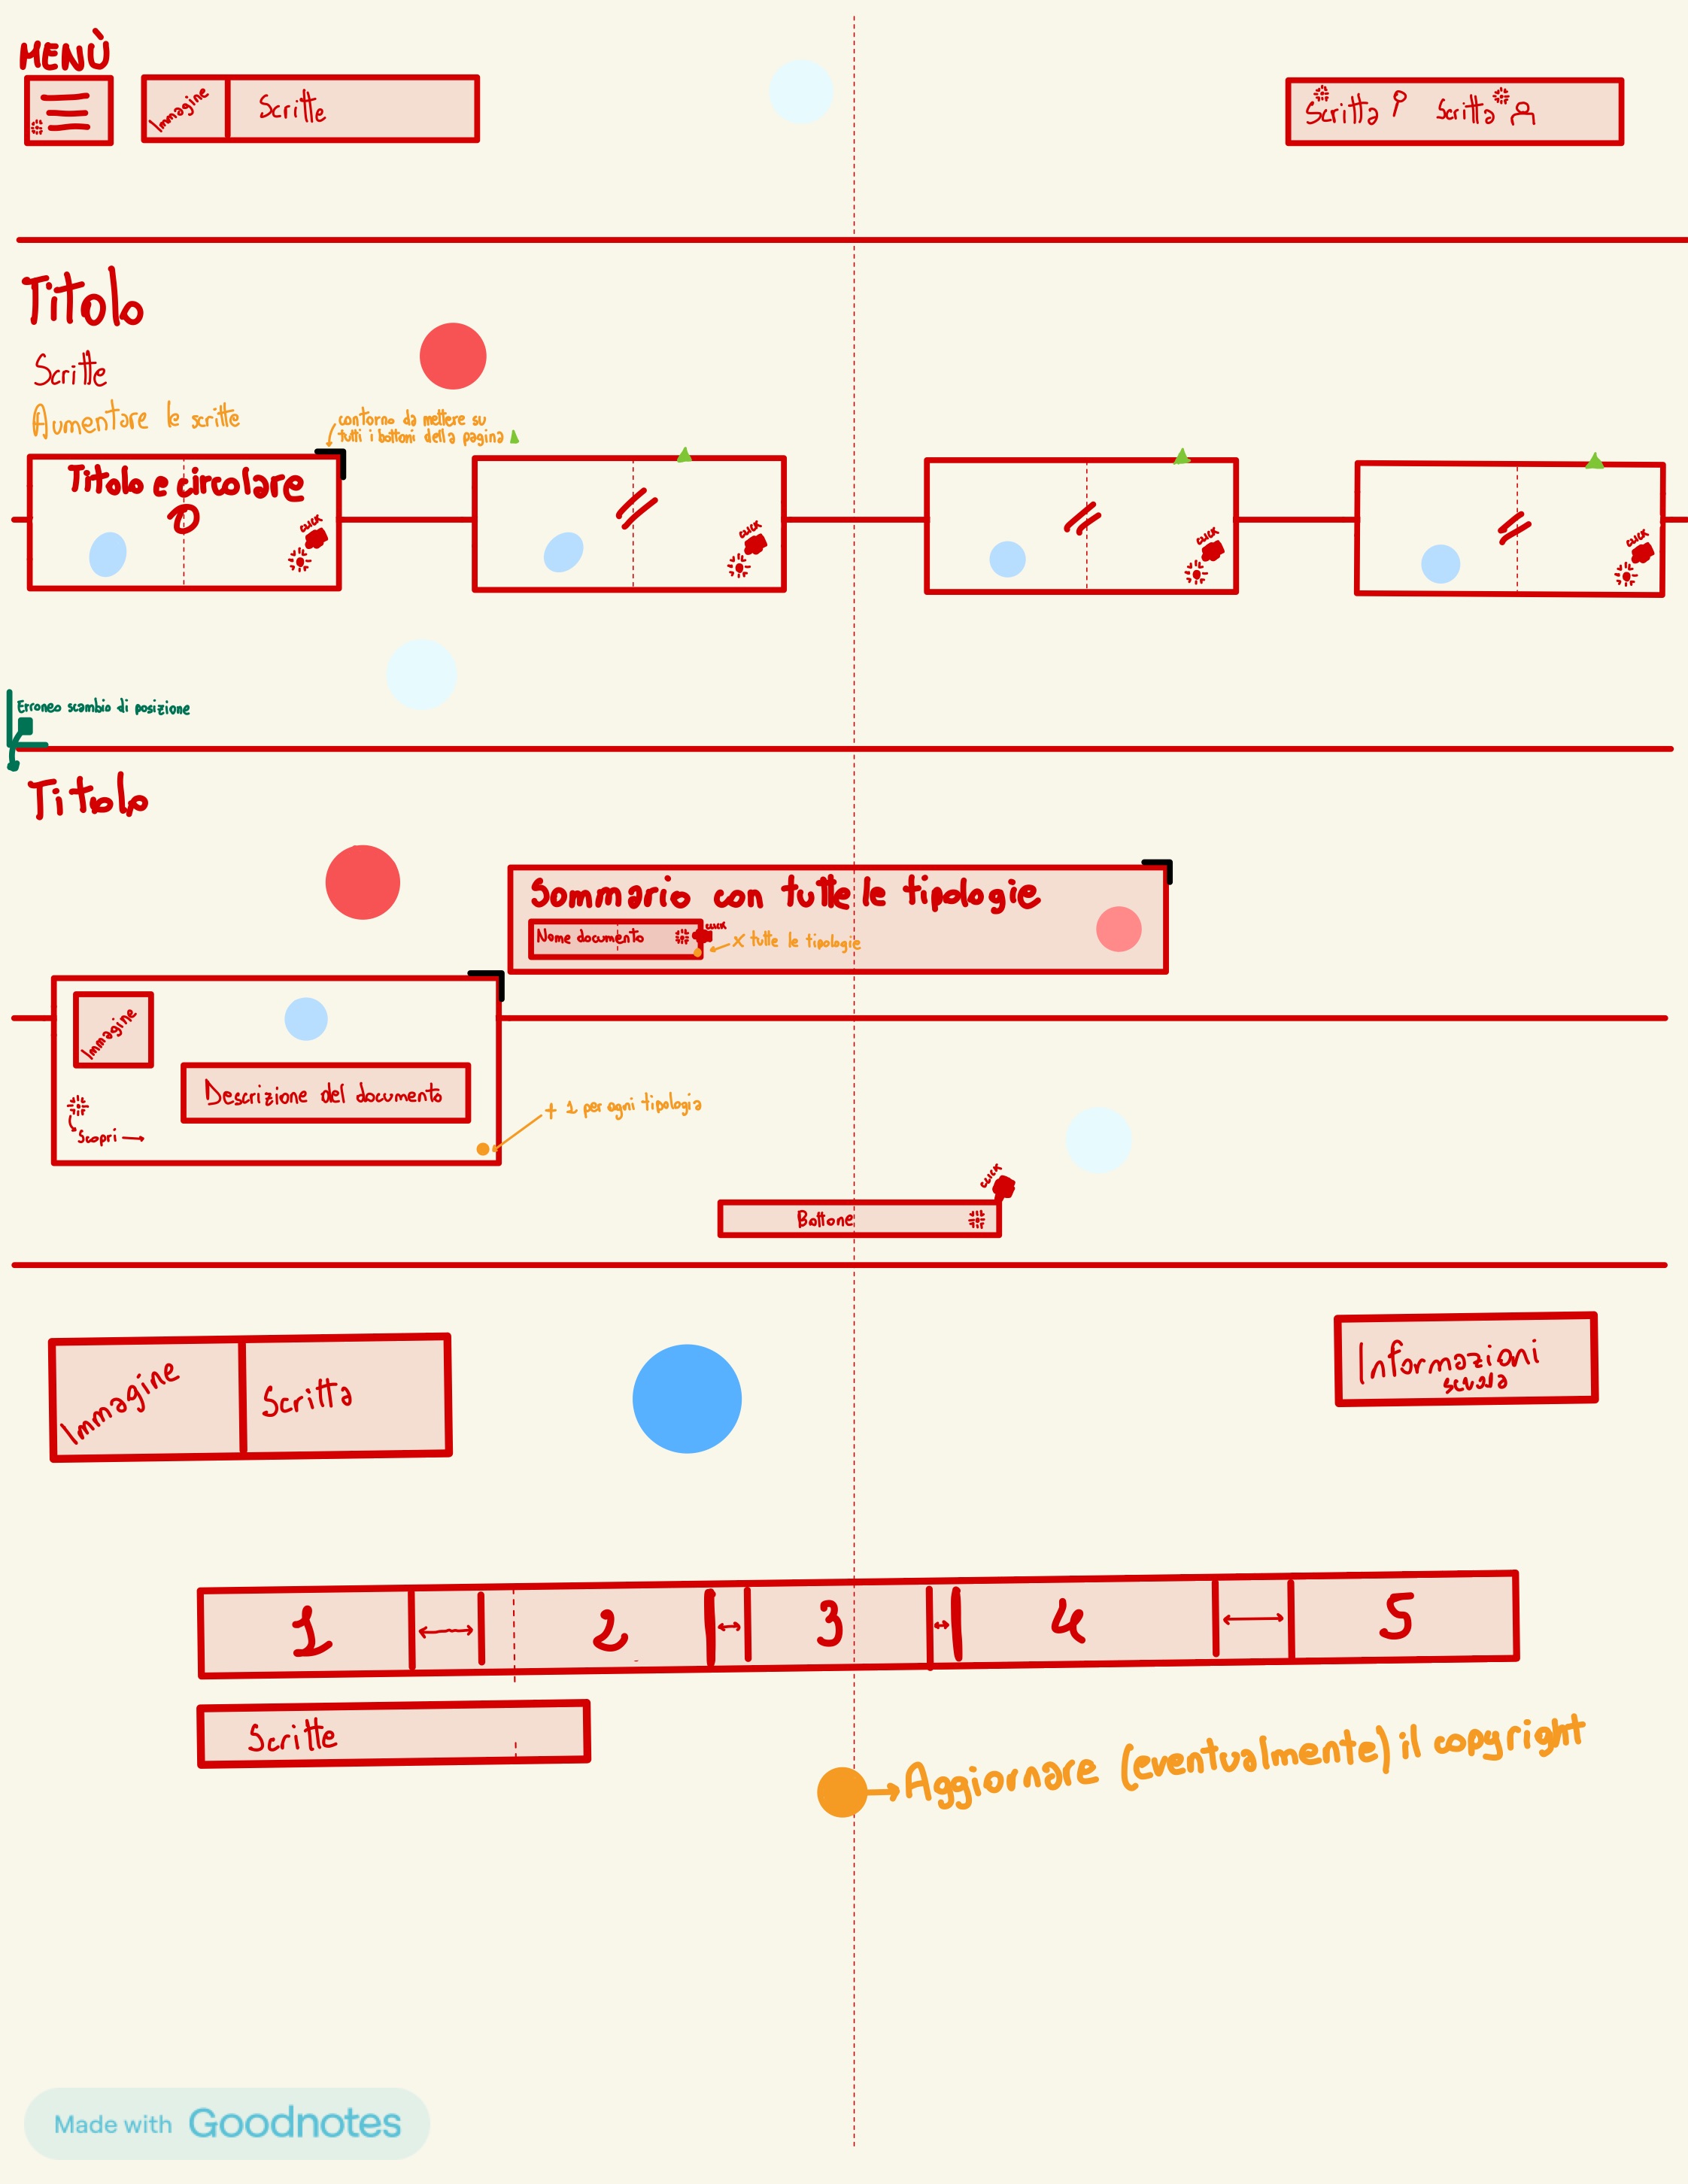 MENÙ
Immagine
Scritte
Scritta
Scritta
Titolo
Scritte
Aumentare le scritte
contorno da mettere su
tutti i bottoni della pagina
Titolo e circolare
CLICK
CLICK
CLICK
CLICK
Erroneo scambio di posizione
Titolo
Sommario con tutte le tipologie
Nome documento
CLICK
x tutte le tipologie
Immagine
Descrizione del documento
Scopri
+ 1 per ogni tipologia
CLICK
Bottone
Immagine
Scritta
Informazioni
scuola
1
2
3
4
5
Scritte
Aggiornare (eventualmente) il copyright
Made with Goodnotes